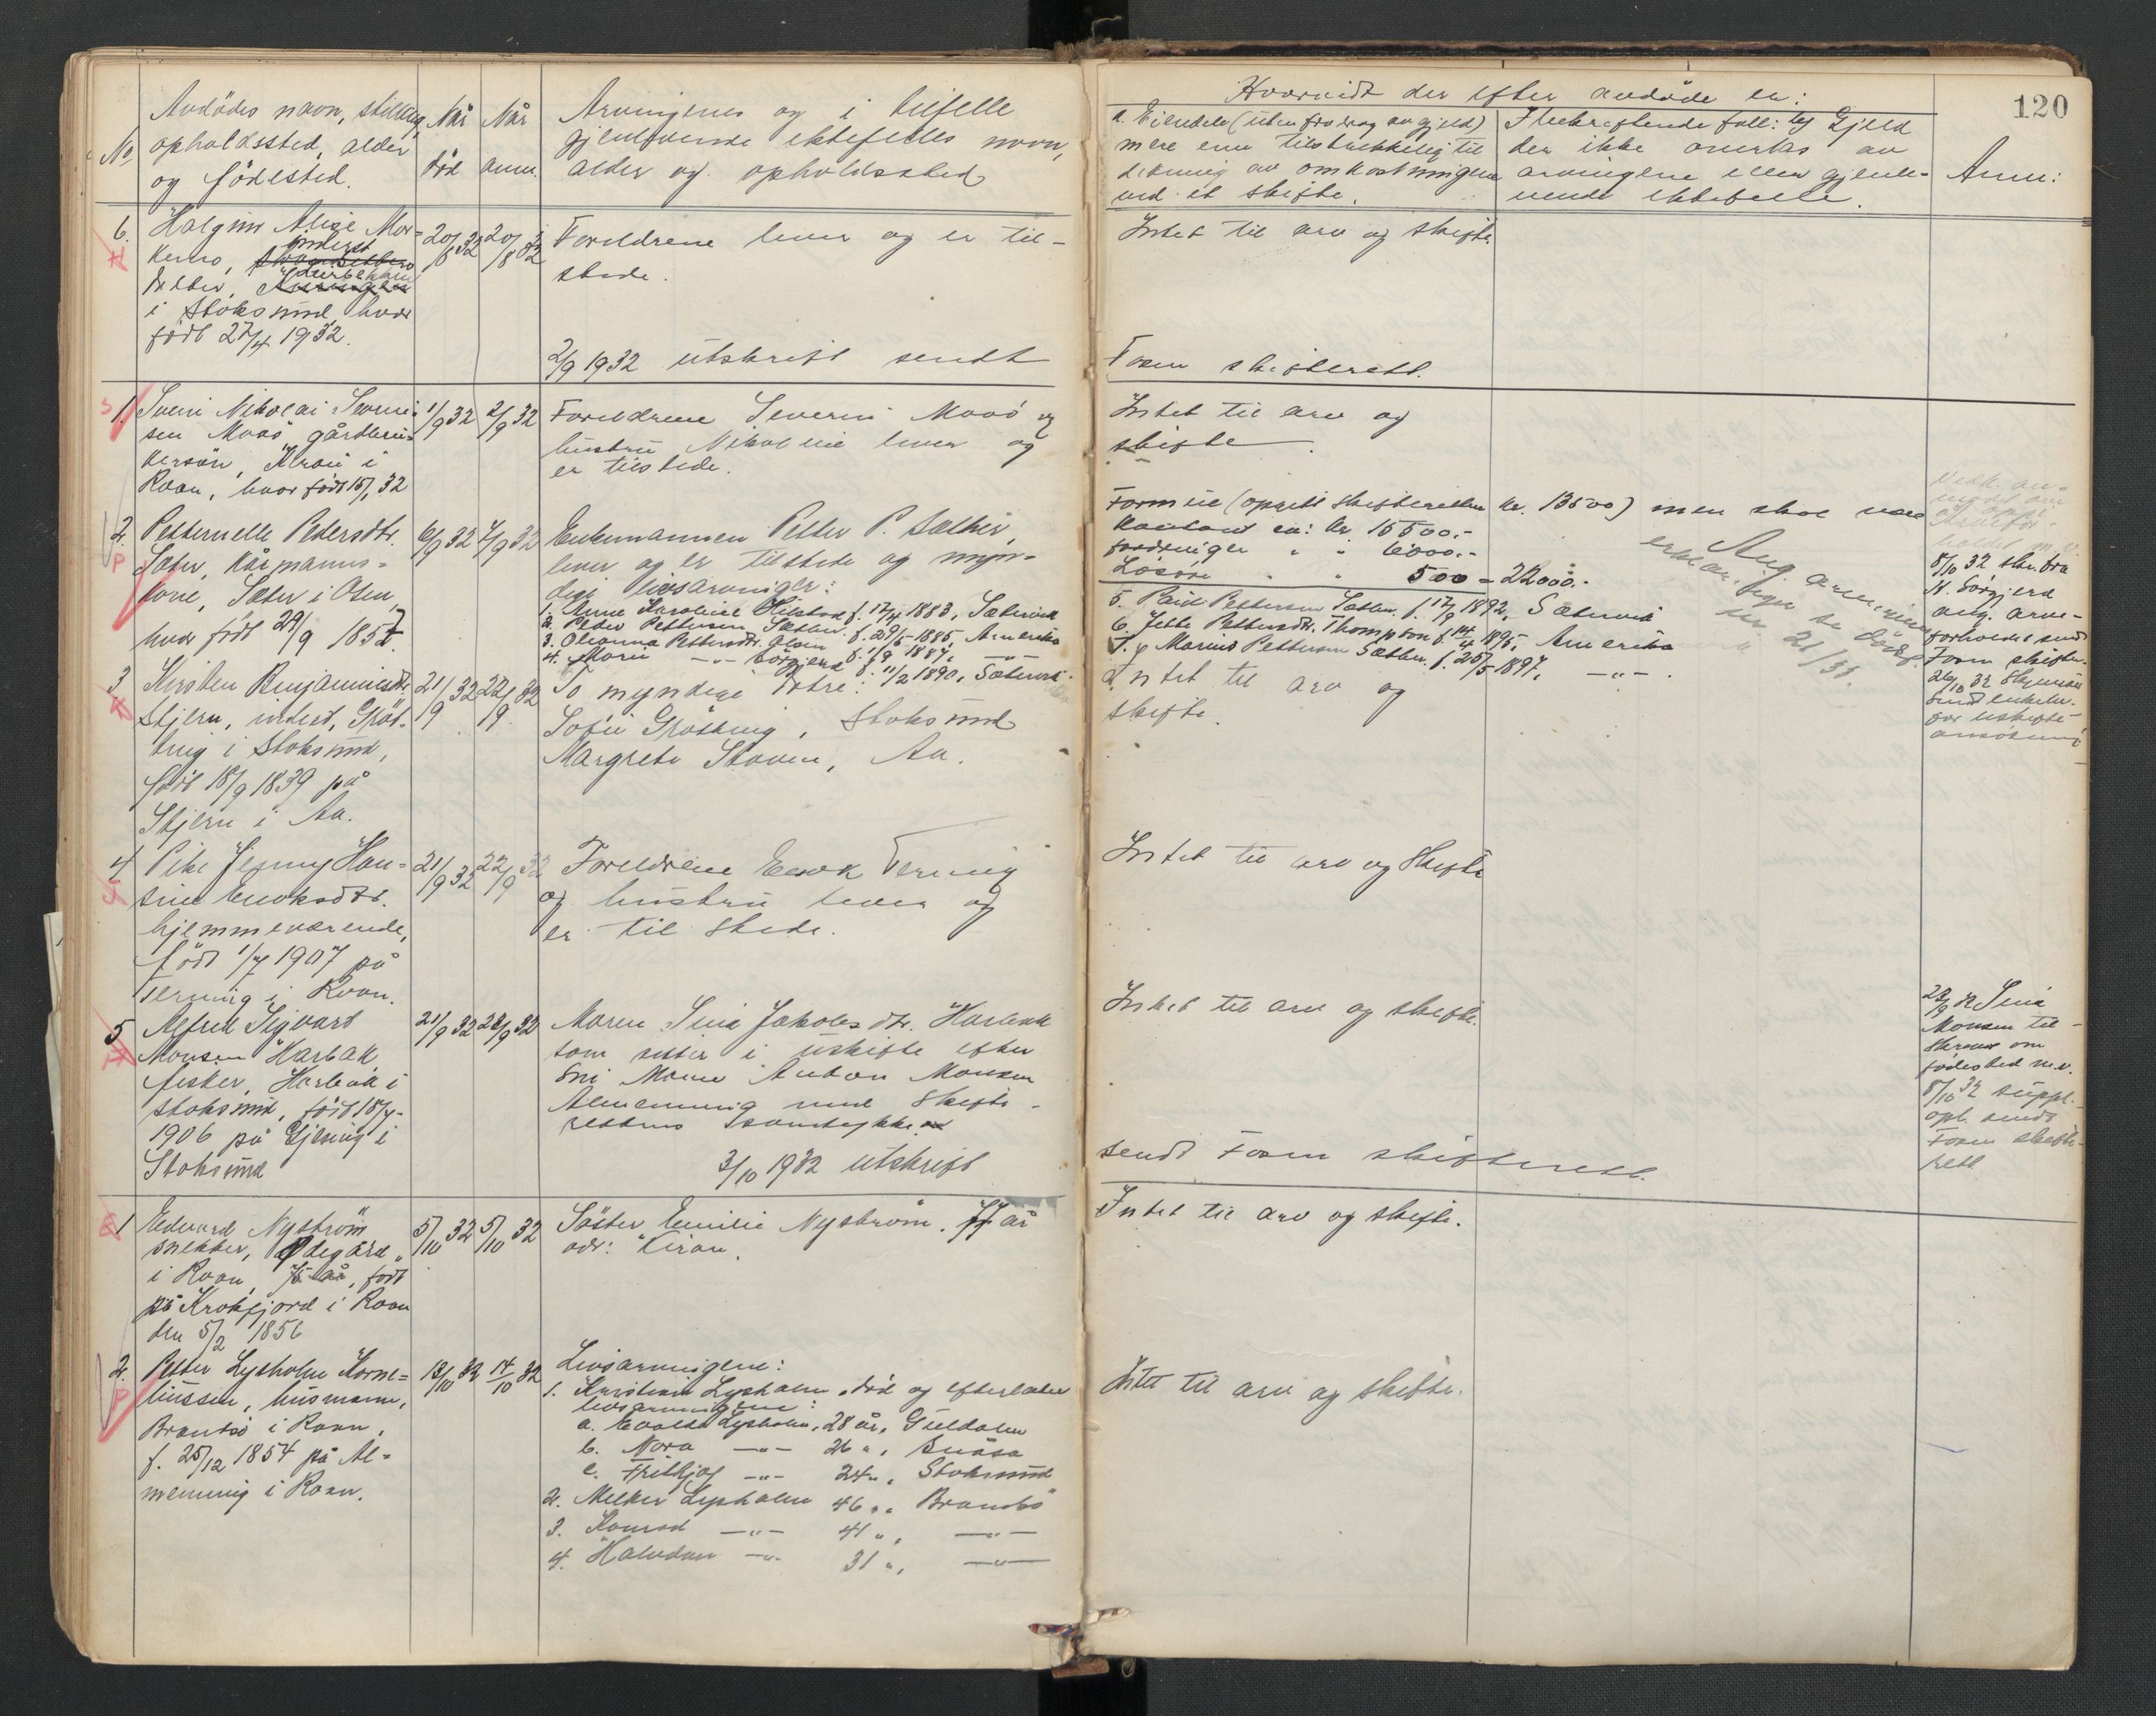 120
No
Avdödes navn, stilling,
opholdssted, alder
og födested.
Når
död
Når
anm.
Arvingenes og i tilfelle
gjenlevende ektefelles navn,
alder og opholdssted
Hvorvidt der efter avdöde er:
a. Eiendele (uten fradrag av gjeld)
mere enn tilstrekkelig til
dekning av omkostningene
ved et skifte.
I bekreftende fall: b) Gjeld
der ikke overtas av
arvingene eller gjenle-
vende ektefelle.
Anm:
6.
Alise Mor-
inderst
i Stoksund, hvor
födt 27/4 1932.
20/8 32
20/8 32
Foreldrene lever og er til-
stede.
Intet til arv og skifte.
2/9 1932 utskrift sendt
Fosen skifterett.
1.
Svein Nikolai Severin-
sen Moaö, gårdbru-
kersön, Kiran i
Roan, hvor födt 15/1 32
1/9 32
2/9 32
Foreldrene Severin Moaö og
hustru Nikoline lever og
er tilstede.
Intet til arv og
skifte.
2.
Petternelle Pedersdtr.
Sæter, kårmanns-
kone, Sæter i Osen,
hvor födt 29/9 1857.
6/9 32
7/9 32
Enkemannen Petter P. Sæther,
lever og er tilstede og myn-
dige livsarvinger:
1. Anne Karoline f. 17/4 1883, Sætervik
2. Peder Pettersen Sæther f. 29/5 1885, Amerika
3. Olianna Pettersdtr. Olsen f. 11/9 1887, -"-
4. Marie -"- Sörgjerd f. 11/2 1890, Sætervik
Formue (opgitt skifteretten kr. 13500) men skal være
Kontant ca: kr. 15500.-
fordringer " " 6000.-
Lösöre " " 500 = 22000.-
5. Paul Pettersen Sæther f. 17/9 1892, Sætervik
6. Jette Pettersdtr. Thompson f. 14/4 1895, Amerika
7. Marius Pettersen Sæther f. 25/5 1897, -"-
8/10 32 skr. fra
M. Sörgjerd
ang. arve-
forholdet sendt
Fosen skifter.
26/10 32
sendt enkem.
for uskifte-
ansökning
3
Kirsten Benjaminsdtr.
Stjern, inderst, Gröt-
ting i Stoksund,
födt 18/9 1839 på
Stjern i Aa.
21/9 32
22/9 32
To myndige dötre:
Sofie Grötting, Stoksund
Margrete Stoven, Aa.
Intet til arv og
skifte.
4
Pike Jenny Han-
sine Enoksdtr.
hjemmeværende,
födt 1/7 1907 på
Terning i Roan.
21/9 32
22/9 32
Foreldrene Enok Terning
og hustru lever og
er til stede.
Intet til arv og skifte
5
Alfred Sigvart
Monsen Harbak
fisker, Harbak i
Stoksund, födt 18/4-
1906 på Gjesing i
Stoksund
21/9 32
28/9 32
Moren Sina Jakobsdtr. Harbak
som sitter i uskifte efter
sin Mann Anton Monsen
Almenning med skifte-
rettens samtykke.
Intet til arv og skifte.
28/9 32 Sina
Monsen til-
skrevet om
födested m.v.
8/10 32 suppl.
opl. sendt
Fosen skifte-
rett
3/10 1932 utskrift
sendt Fosen skifterett.
1
Edvard Nyström
snekker, Ödegård
i Roan, födt
på Krokfjord i Roan
den 5/2 1856
5/10 32
5/10 32
Söster Emilie Nyström. 77 år
adr: Kiran.
Intet til arv og skifte.
2.
Petter Lysholm Korne-
liussen, husmann,
Brandsö i Roan,
f. 25/12 1854 på Al-
menning i Roan.
13/10 32
14/10 32
Livsarvingene:
1. Kristian Lysholm, död og efterlater
livsarvingene:
a. Lysholm, 28 år, Guldalen
b. Nora -"- 26 ", Snåsa
c. Fritjof -"- 24 ", Stoksund
2. Melker Lysholm 46 ", Brandsö
3. Konrad -"- 41 ", -"-
4. Halvdan -"- 31 ", -"-
Intet til arv og skifte.